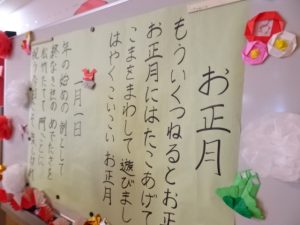 お正月
もういくつねるとお正
お正月にはたこあげて
こまをまわして遊びまし
はやくこいこいお正月
一月一日
年の始めの例として
終なき世のめでたさを
松竹たてて門ごとに
祝う